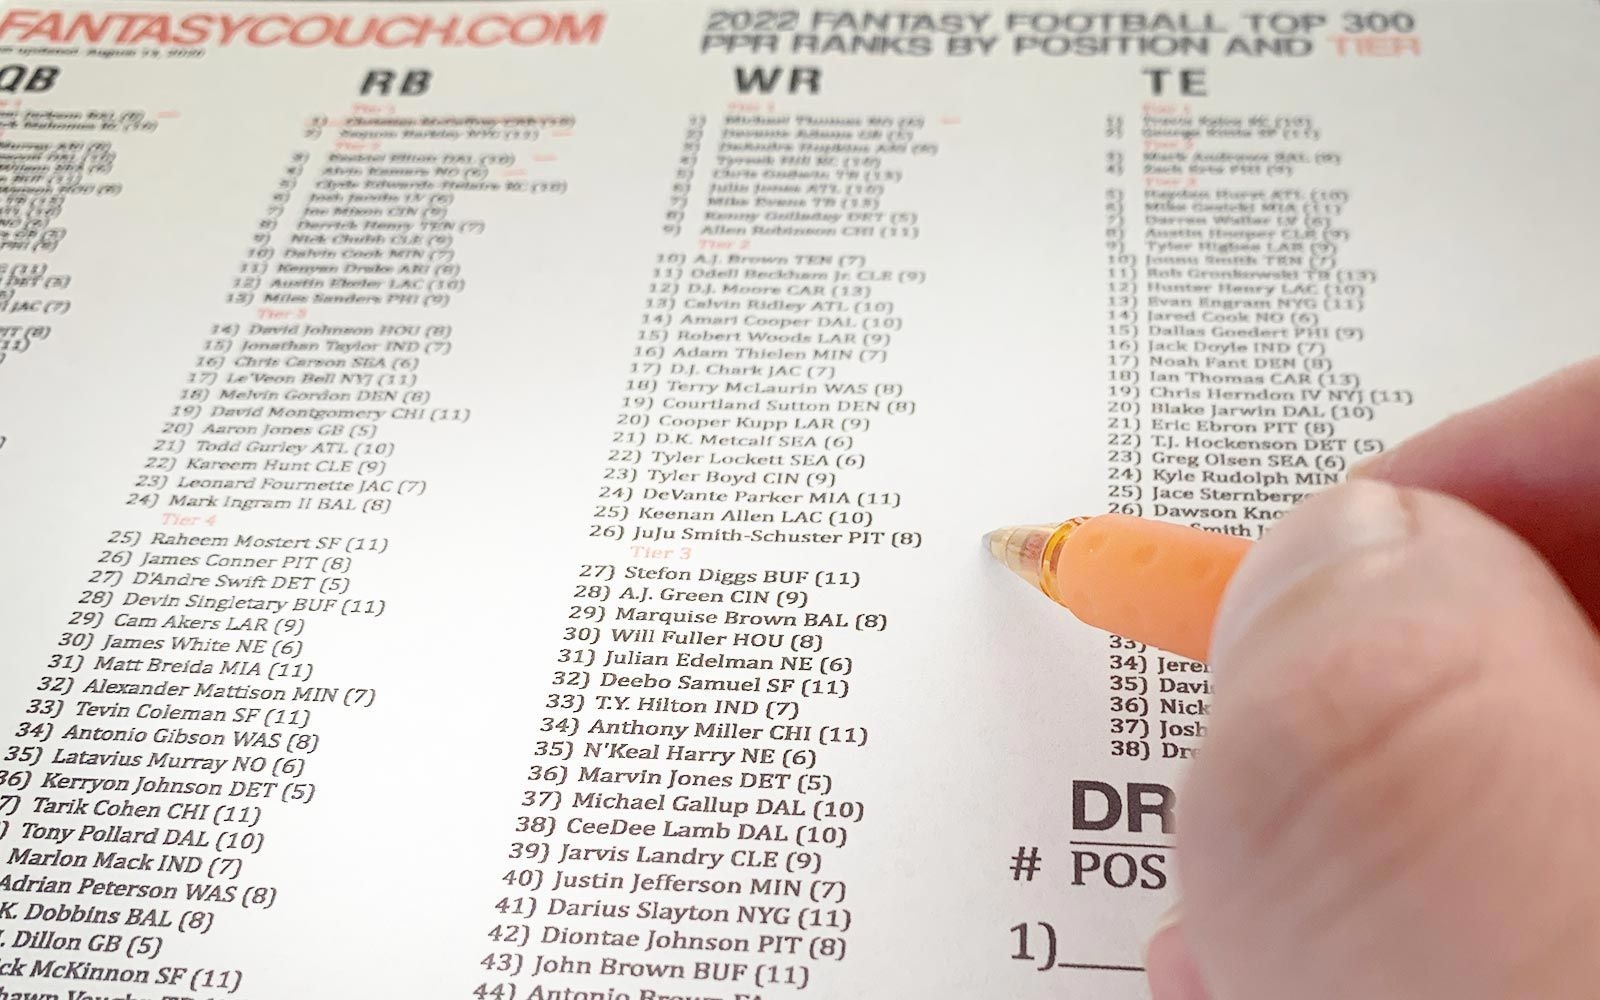 FANTASYCOUCH.COM
2022 FANTASY FOOTBALL TOP 300
PPR RANKS BY POSITION AND TIER
QB
RB
Tier 1
2) Saquon Barkley NYG (11)
Tier 2
3) Ezekiel Elliott DAL (10)
4) Alvin Kamara NO (6)
5) Clyde Edwards-Helaire KC (10)
6) Josh Jacobs LV (6)
7) Joe Mixon CIN (9)
8) Derrick Henry TEN (7)
9) Nick Chubb CLE (9)
10) Dalvin Cook MIN (7)
11) Kenyan Drake ARI (8)
12) Austin Ekeler LAC (10)
13) Miles Sanders PHI (9)
Tier 3
14) David Johnson HOU (8)
15) Jonathan Taylor IND (7)
16) Chris Carson SEA (6)
17) Le'Veon Bell NYJ (11)
18) Melvin Gordon DEN (8)
19) David Montgomery CHI (11)
20) Aaron Jones GB (5)
21) Todd Gurley ATL (10)
22) Kareem Hunt CLE (9)
23) Leonard Fournette JAC (7)
24) Mark Ingram II BAL (8)
Tier 4
25) Raheem Mostert SF (11)
26) James Conner PIT (8)
27) D'Andre Swift DET (5)
28) Devin Singletary BUF (11)
29) Cam Akers LAR (9)
30) James White NE (6)
31) Matt Breida MIA (11)
32) Alexander Mattison MIN (7)
33) Tevin Coleman SF (11)
34) Antonio Gibson WAS (8)
35) Latavius Murray NO (6)
36) Kerryon Johnson DET (5)
7) Tarik Cohen CHI (11)
) Tony Pollard DAL (10)
Marlon Mack IND (7)
Adrian Peterson WAS (8)
K. Dobbins BAL (8)
. Dillon GB (5)
ck McKinnon SF (11)
WR
Tier 1
1) Michael Thomas NO (6)
2) Davante Adams GB (5)
3) DeAndre Hopkins ARI (8)
4) Tyreek Hill KC (10)
5) Chris Godwin TB (13)
6) Julio Jones ATL (10)
7) Mike Evans TB (13)
8) Kenny Golladay DET (5)
9) Allen Robinson CHI (11)
Tier 2
10) A.J. Brown TEN (7)
11) Odell Beckham Jr. CLE (9)
12) D.J. Moore CAR (13)
13) Calvin Ridley ATL (10)
14) Amari Cooper DAL (10)
15) Robert Woods LAR (9)
16) Adam Thielen MIN (7)
17) D.J. Chark JAC (7)
18) Terry McLaurin WAS (8)
19) Courtland Sutton DEN (8)
20) Cooper Kupp LAR (9)
21) D.K. Metcalf SEA (6)
22) Tyler Lockett SEA (6)
23) Tyler Boyd CIN (9)
24) DeVante Parker MIA (11)
25) Keenan Allen LAC (10)
26) JuJu Smith-Schuster PIT (8)
Tier 3
27) Stefon Diggs BUF (11)
28) A.J. Green CIN (9)
29) Marquise Brown BAL (8)
30) Will Fuller HOU (8)
31) Julian Edelman NE (6)
32) Deebo Samuel SF (11)
33) T.Y. Hilton IND (7)
34) Anthony Miller CHI (11)
35) N'Keal Harry NE (6)
36) Marvin Jones DET (5)
37) Michael Gallup DAL (10)
38) CeeDee Lamb DAL (10)
39) Jarvis Landry CLE (9)
40) Justin Jefferson MIN (7)
41) Darius Slayton NYG (11)
42) Diontae Johnson PIT (8)
43) John Brown BUF (11)
44) Antonio Brown FA
TE
Tier 1
1) Travis Kelce KC (10)
2) George Kittle SF (11)
Tier 2
3) Mark Andrews BAL (8)
4) Zach Ertz PHI (9)
Tier 3
5) Hayden Hurst ATL (10)
6) Mike Gesicki MIA (11)
7) Darren Waller LV (6)
8) Austin Hooper CLE (9)
9) Tyler Higbee LAR (9)
10) Jonnu Smith TEN (7)
11) Rob Gronkowski TB (13)
12) Hunter Henry LAC (10)
13) Evan Engram NYG (11)
14) Jared Cook NO (6)
15) Dallas Goedert PHI (9)
16) Jack Doyle IND (7)
17) Noah Fant DEN (8)
18) Ian Thomas CAR (13)
19) Chris Herndon IV NYJ (11)
20) Blake Jarwin DAL (10)
21) Eric Ebron PIT (8)
22) T.J. Hockenson DET (5)
23) Greg Olsen SEA (6)
24) Kyle Rudolph MIN
25) Jace Sternberge
26) Dawson Kno
Smith J
33)
34) Jere
35) Davi
36) Nick
37) Josh
38) Dre
DR
# POS
1)